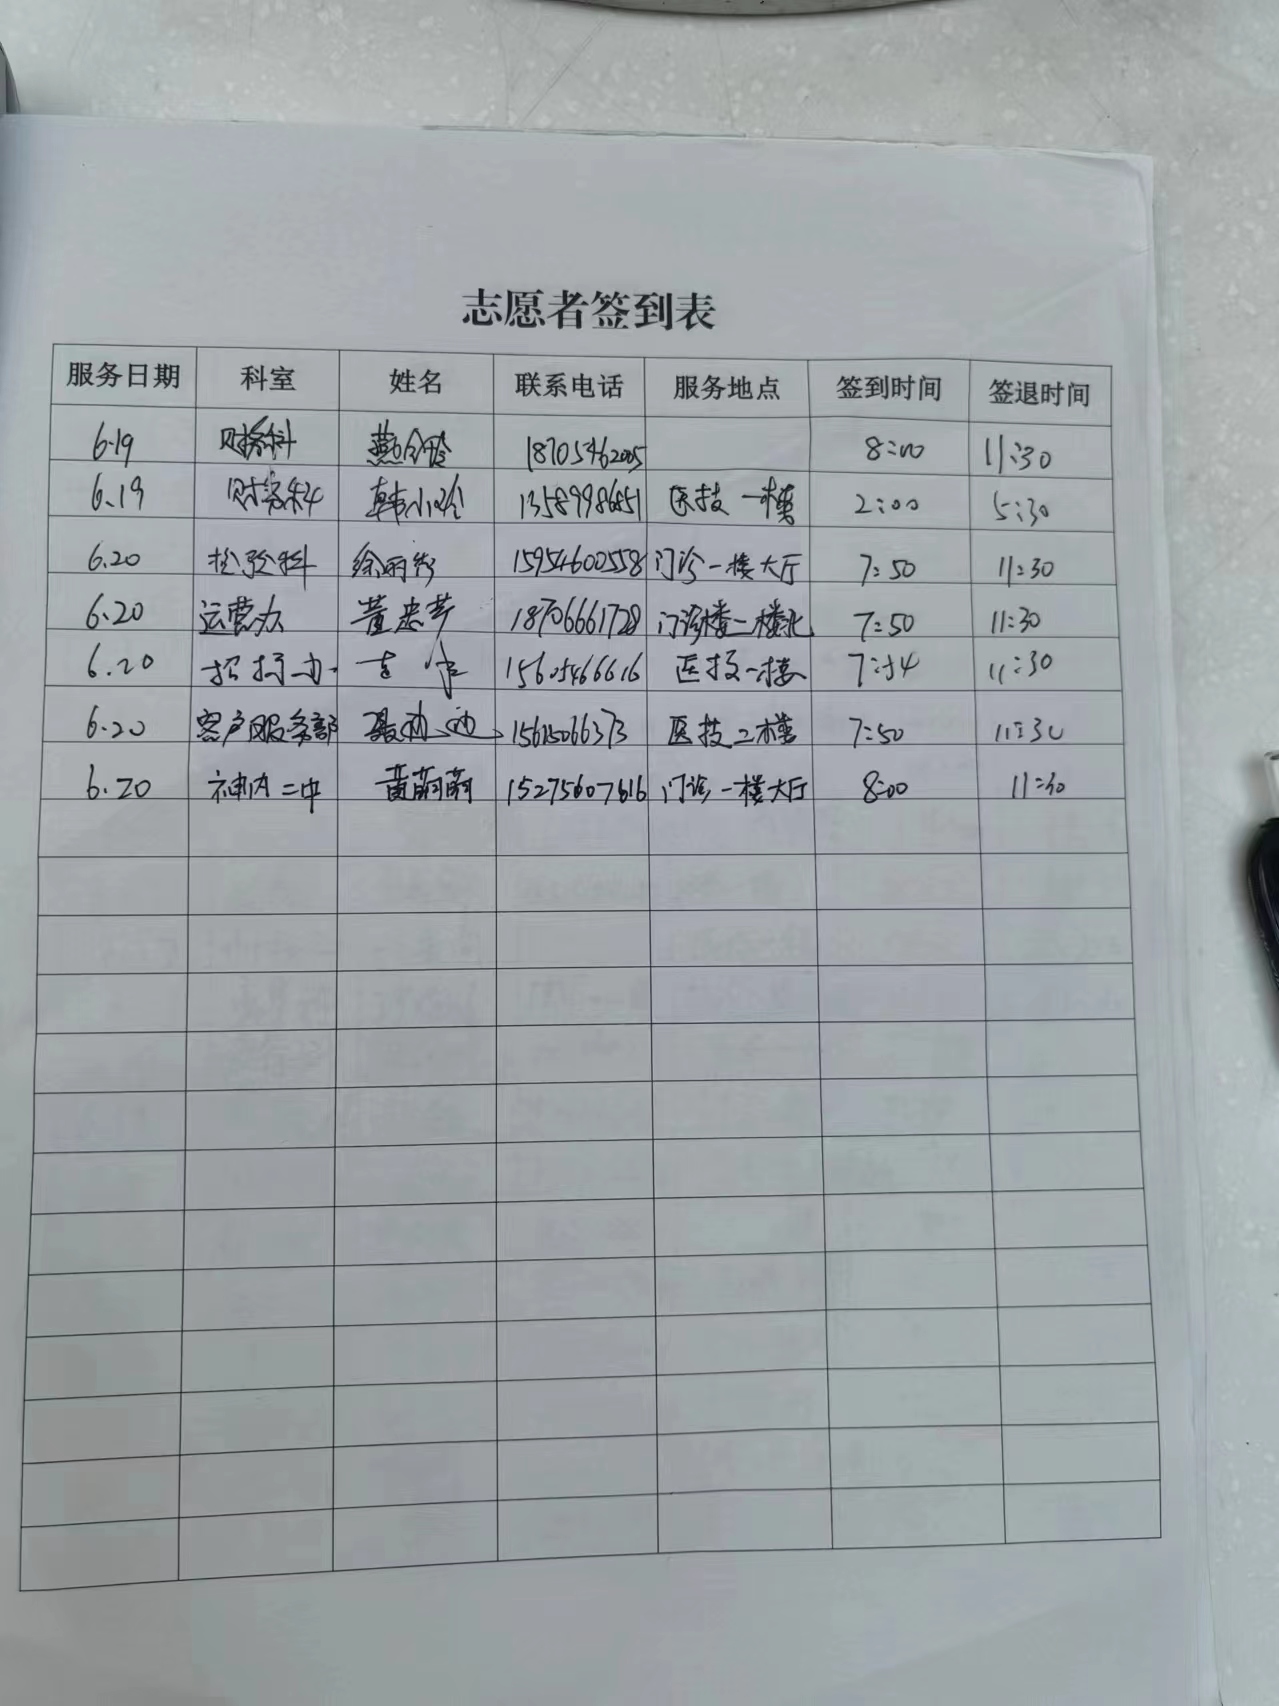 志愿者签到表
服务日期 科室 姓名 联系电话 服务地点 签到时间 签退时间
6.19 财务科 18705462005 8:00 11:30
6.19 财务科 韩小玲 13589986851 医技一楼 2:00 5:30
6.20 检验科 徐丽 15954600558 门诊一楼大厅 7:50 11:30
6.20 运营办 董忠芹 18706661728 门诊楼二楼北 7:50 11:30
6.20 招标办 15605466616 医技一楼 7:54 11:30
6.20 客户服务部 聂 15615066373 医技二楼 7:50 11:30
6.20 神内二中 黄萌萌 15275607616 门诊一楼大厅 8:00 11:30